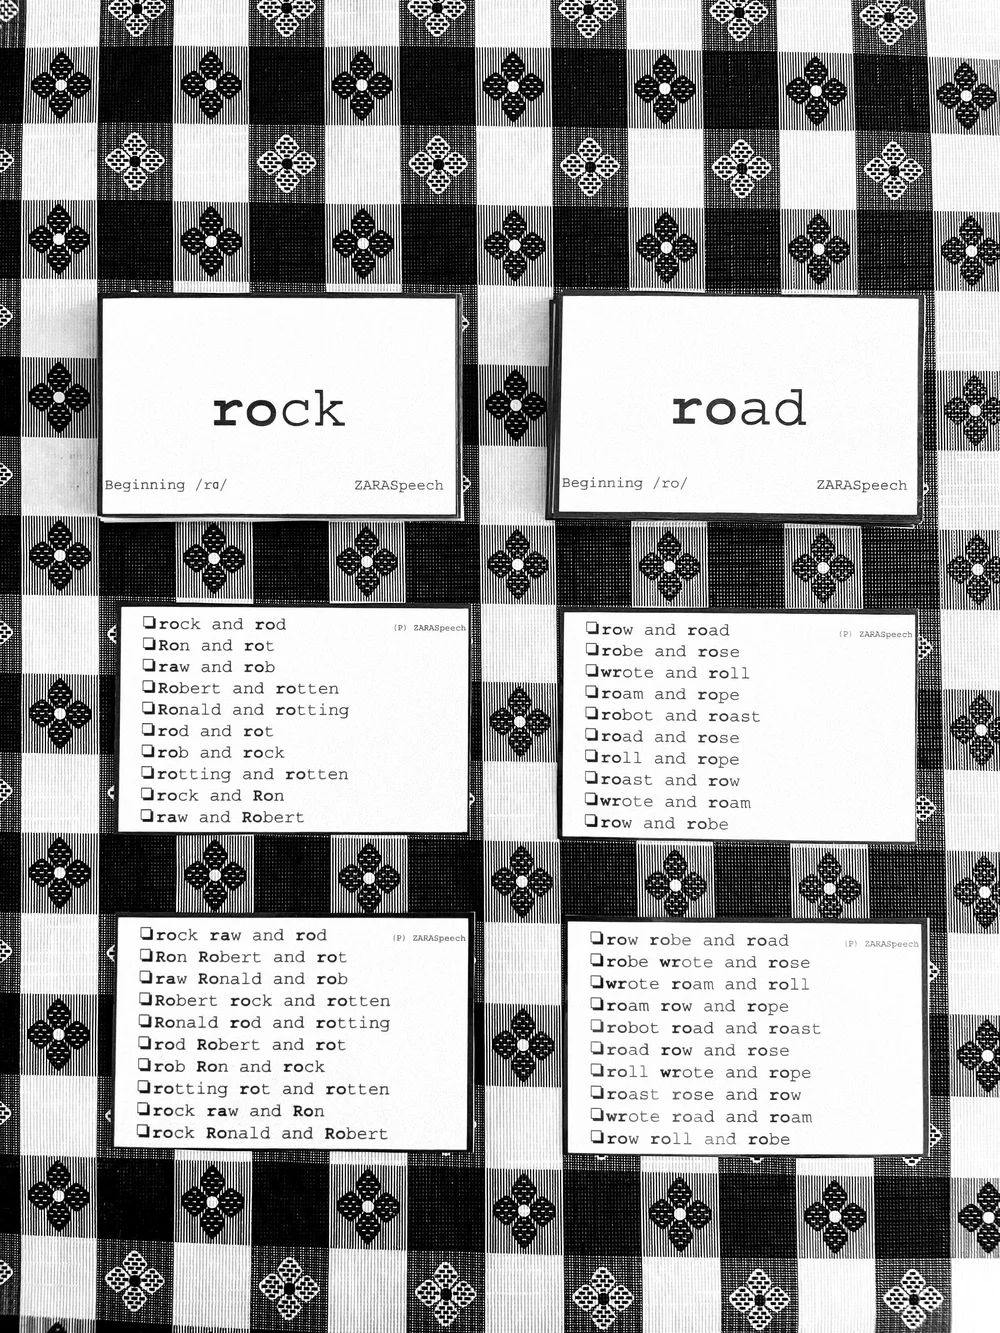 rock
Beginning /rɑ/ ZARASpeech
road
Beginning /ro/ ZARASpeech
❏rock and rod
(P) ZARASpeech
❏Ron and rot
❏raw and rob
❏Robert and rotten
❏Ronald and rotting
❏rod and rot
❏rob and rock
❏rotting and rotten
❏rock and Ron
❏raw and Robert
❏row and road
(P) ZARASpeech
❏robe and rose
❏wrote and roll
❏roam and rope
❏robot and roast
❏road and rose
❏roll and rope
❏roast and row
❏wrote and roam
❏row and robe
❏rock raw and rod
(P) ZARASpeech
❏Ron Robert and rot
❏raw Ronald and rob
❏Robert rock and rotten
❏Ronald rod and rotting
❏rod Robert and rot
❏rob Ron and rock
❏rotting rot and rotten
❏rock raw and Ron
❏rock Ronald and Robert
❏row robe and road
(P) ZARASpeech
❏robe wrote and rose
❏wrote roam and roll
❏roam row and rope
❏robot road and roast
❏road row and rose
❏roll wrote and rope
❏roast rose and row
❏wrote road and roam
❏row roll and robe